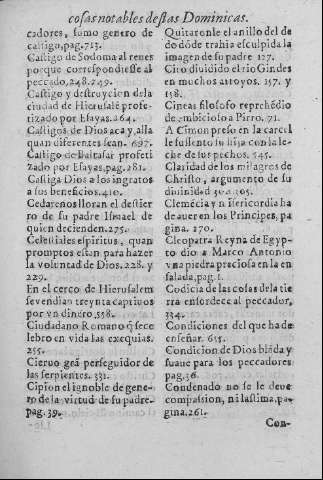 cosas notables destas Dominicas.
cadores, sumo genero de
castigo, pag.713.
Castigo de Sodoma al renes
porque correspondiesse al
peccado, 248.249.
Castigo y destruycion de la
ciudad de Hierusalē profe-
tizado por Esayas.264.
Castigos de Dios aca y, alla
quan differentes sean. 697.
Castigo de Baltasar profeti
zado por Esayas, pag.281.
Castiga Dios a los ingratos
a sus beneficios.410.
Cedarenos lloran el destier
ro de su padre Ismael de
quien decienden.275.
Celestiales espiritus, quan
promptos estan para hazer
la voluntad de Dios.228. y
229.
En el cerco de Hierusalem
se vendian treynta captiuos
por vn dinero,558.
Ciudadano Romano q̄ sece
lebro en vida las exequias.
255.
Cieruo grā perseguidor de
las serpientes. 331.
Cipion el ignoble de gene-
ro de la virtud de su padre.
pag.39.
Quitaronle el anillo del de
do dōde trahia esculpida la
imagen de su padre 127.
Cito diuidido el rio Gindes
en muchos arroyos. 157. y
158.
Cineas filosofo reprehēdio
de ambicioso a Pirro, 71.
A Cimon preso en la carcel
le sustento su hija con la le-
che de sus pechos. 545.
Claridad de los milagros de
Christo, argumento de su
diuinidad 302.305.
Clemēcia y misericordia ha
de auer en los Principes, pa
gina. 170.
Cleopatra Reyna de Egyp-
to dio a Marco Antonio
vna piedra preciosa en la en
salada, pag.1.
Codicia de las cosas dela tie
rra ensordece al peccador,
334.
Condiciones del que ha de
enseñar. 655.
Condicion de Dios blāda y
suaue para los peccadores
pag.36.
Condenado no se le deue
compassion, ni lastima, pa-
gina.261.
Con-